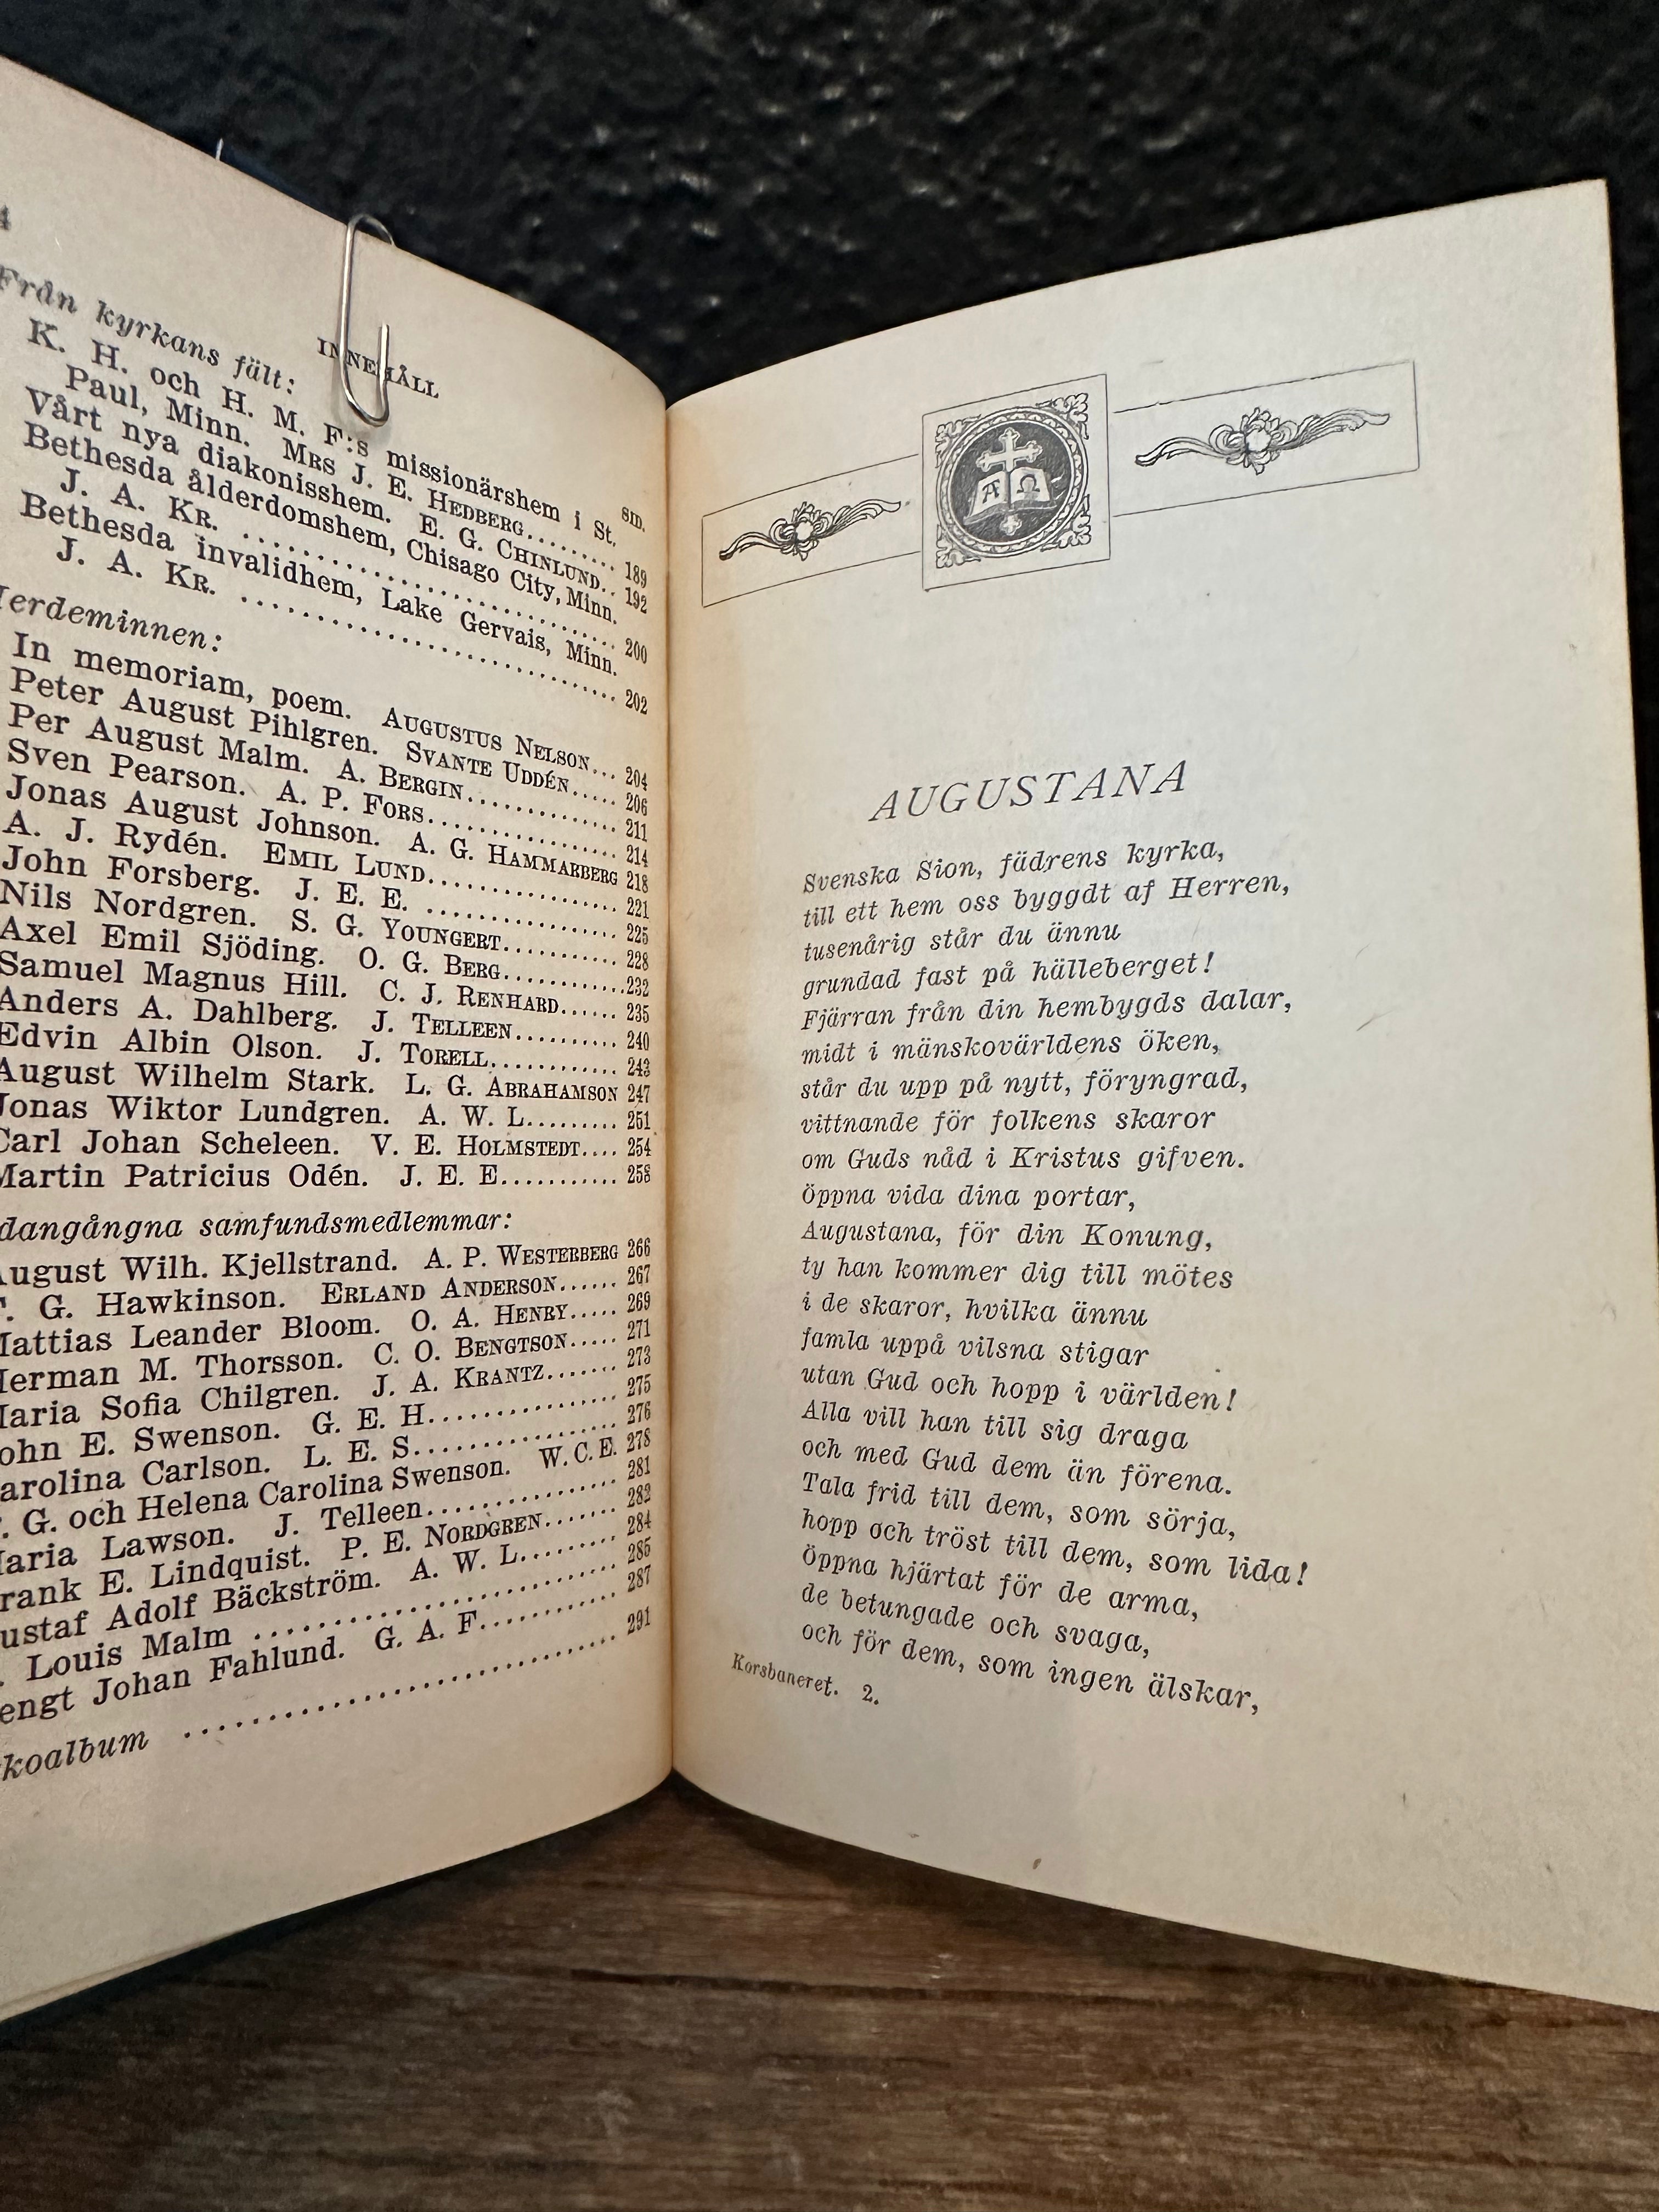 4
INNEHÅLL
SID.
Från kyrkans fält:
K. H. och H. M. F:s missionärshem i St.
Paul, Minn. MRS J. E. HEDBERG......... 189
Vårt nya diakonisshem. E. G. CHINLUND.. 192
Bethesda ålderdomshem, Chisago City, Minn.
J. A. KR. .............................. 200
Bethesda invalidhem, Lake Gervais, Minn.
J. A. KR. .............................. 202
Herdeminnen:
In memoriam, poem. AUGUSTUS NELSON... 204
Peter August Pihlgren. SVANTE UDDÉN..... 206
Per August Malm. A. BERGIN............... 211
Sven Pearson. A. P. FORS.................. 214
Jonas August Johnson. A. G. HAMMARBERG 218
A. J. Rydén. EMIL LUND.................... 221
John Forsberg. J. E. E. .................... 225
Nils Nordgren. S. G. YOUNGERT............ 228
Axel Emil Sjöding. O. G. BERG.............232
Samuel Magnus Hill. C. J. RENHARD...... 235
Anders A. Dahlberg. J. TELLEEN.......... 240
Edvin Albin Olson. J. TORELL............. 243
August Wilhelm Stark. L. G. ABRAHAMSON 247
Jonas Wiktor Lundgren. A. W. L......... 251
Carl Johan Scheleen. V. E. HOLMSTEDT.... 254
Martin Patricius Odén. J. E. E........... 258
dangångna samfundsmedlemmar:
August Wilh. Kjellstrand. A. P. WESTERBERG 266
G. Hawkinson. ERLAND ANDERSON...... 267
Mattias Leander Bloom. O. A. HENRY..... 269
Herman M. Thorsson. C. O. BENGTSON..... 271
Maria Sofia Chilgren. J. A. KRANTZ....... 273
John E. Swenson. G. E. H................ 275
Carolina Carlson. L. E. S................. 276
G. och Helena Carolina Swenson. W. C. E. 278
Maria Lawson. J. Telleen................ 281
Frank E. Lindquist. P. E. NORDGREN....... 282
Gustaf Adolf Bäckström. A. W. L......... 284
Louis Malm .............................. 285
Bengt Johan Fahlund. G. A. F............ 287
koalbum .................................. 291
AUGUSTANA
Svenska Sion, fädrens kyrka,
till ett hem oss byggdt af Herren,
tusenårig står du ännu
grundad fast på hälleberget!
Fjärran från din hembygds dalar,
midt i mänskovärldens öken,
står du upp på nytt, föryngrad,
vittnande för folkens skaror
om Guds nåd i Kristus gifven.
Öppna vida dina portar,
Augustana, för din Konung,
ty han kommer dig till mötes
i de skaror, hvilka ännu
famla uppå vilsna stigar
utan Gud och hopp i världen!
Alla vill han till sig draga
och med Gud dem än förena.
Tala frid till dem, som sörja,
hopp och tröst till dem, som lida!
Öppna hjärtat för de arma,
de betungade och svaga,
och för dem, som ingen älskar,
Korsbaneret. 2.